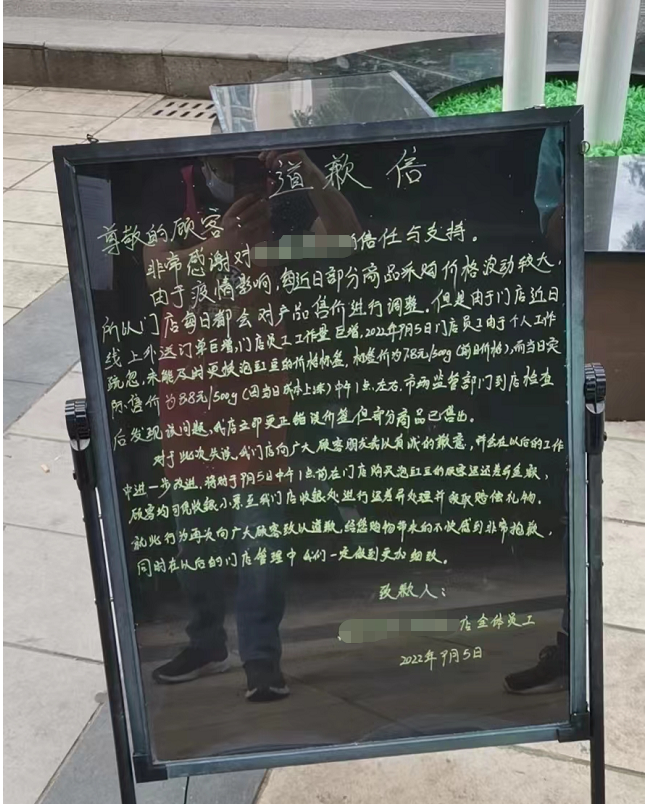 道歉信
尊敬的顾客：
非常感谢对 信任与支持。
由于疫情影响，近日部分商品采购价格波动较大，
所以门店每日都会对产品售价进行调整。但是由于门店近日
线上外送订单巨增，门店员工工作量巨增，2022年9月5日门店员工由于个人工作
疏忽，未能及时更换泡豇豆的价格标签，标签价为7.8元/500g（前日价格），而当日实
际售价为8.8元/500g（因当日成本上涨）中午1点左右，市场监管部门到店检查
后发现该问题，我店立即更正错误价签，但部分商品已售出。
对于此次失误，我门店向广大顾客朋友表以真诚的歉意，并会在以后的工作
中进一步改进，将对于9月5日中午1点前在门店购买泡豇豆的顾客退还差异金额，
顾客均可凭收银小票至我门店收银处进行退差异处理并领取赔偿礼物。
就此行为再次向广大顾客致以道歉，给您购物带来的不快感到非常抱歉，
同时在以后的门店管理中我们一定做到更加细致。
致歉人：
店全体员工
2022年9月5日